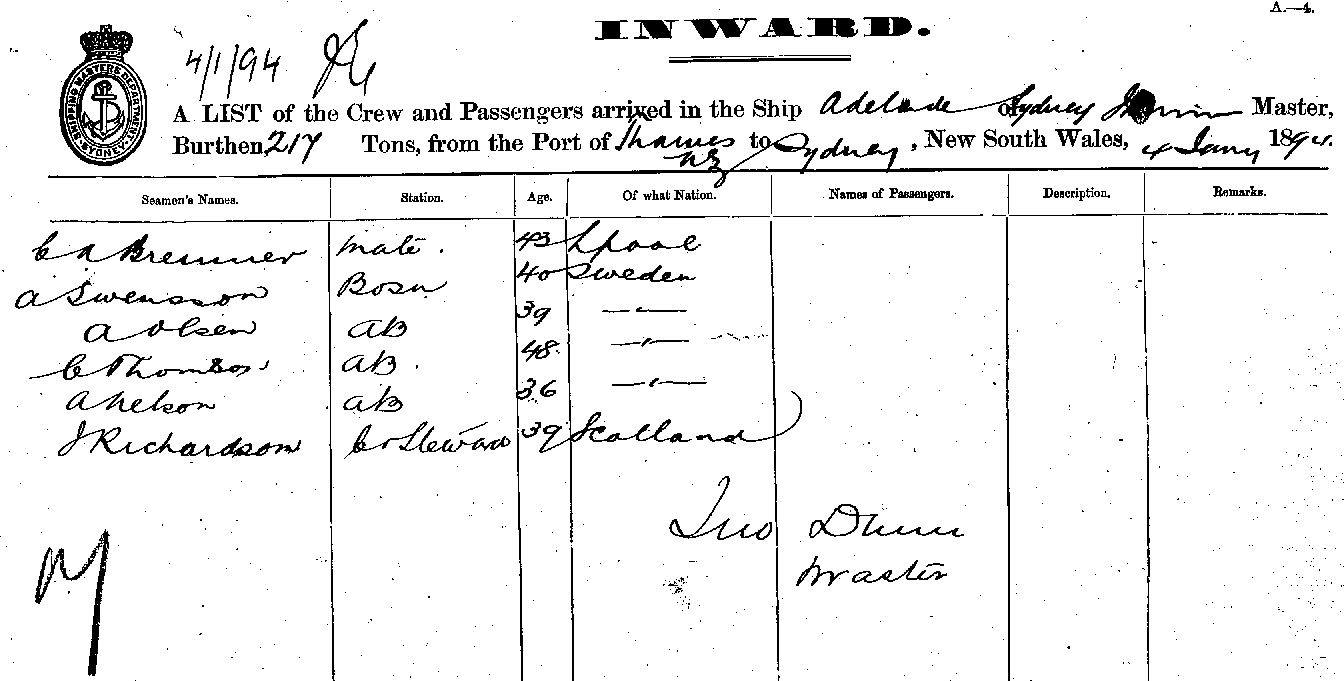 A.—4.
INWARD.
4/1/94
SHIPPING MASTERS DEPARTMENT SYDNEY
A LIST of the Crew and Passengers arrived in the Ship Adelaide of Sydney Master,
Burthen, 217 Tons, from the Port of Thames NZ to Sydney, New South Wales, 4 Jany 1894.
Seamen's Names. Station. Age. Of what Nation. Names of Passengers. Description. Remarks.
C A Bremner Mate. 43 Lpool
A Swensson Bosn 40 Sweden
A Olsen AB 39 —"—
C Thomson AB. 48 —"—
A Nelson AB 36 —"—
J Richardson C & Steward 39 Scotland
Jno Dunn
Master